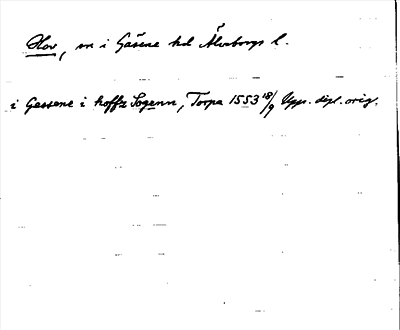 Hov, sn i Gäsene hd Älvsborgs l.
i Gassene i hoffz Sogenn, Torpa 1553 18/9 Upps. dipl. orig.